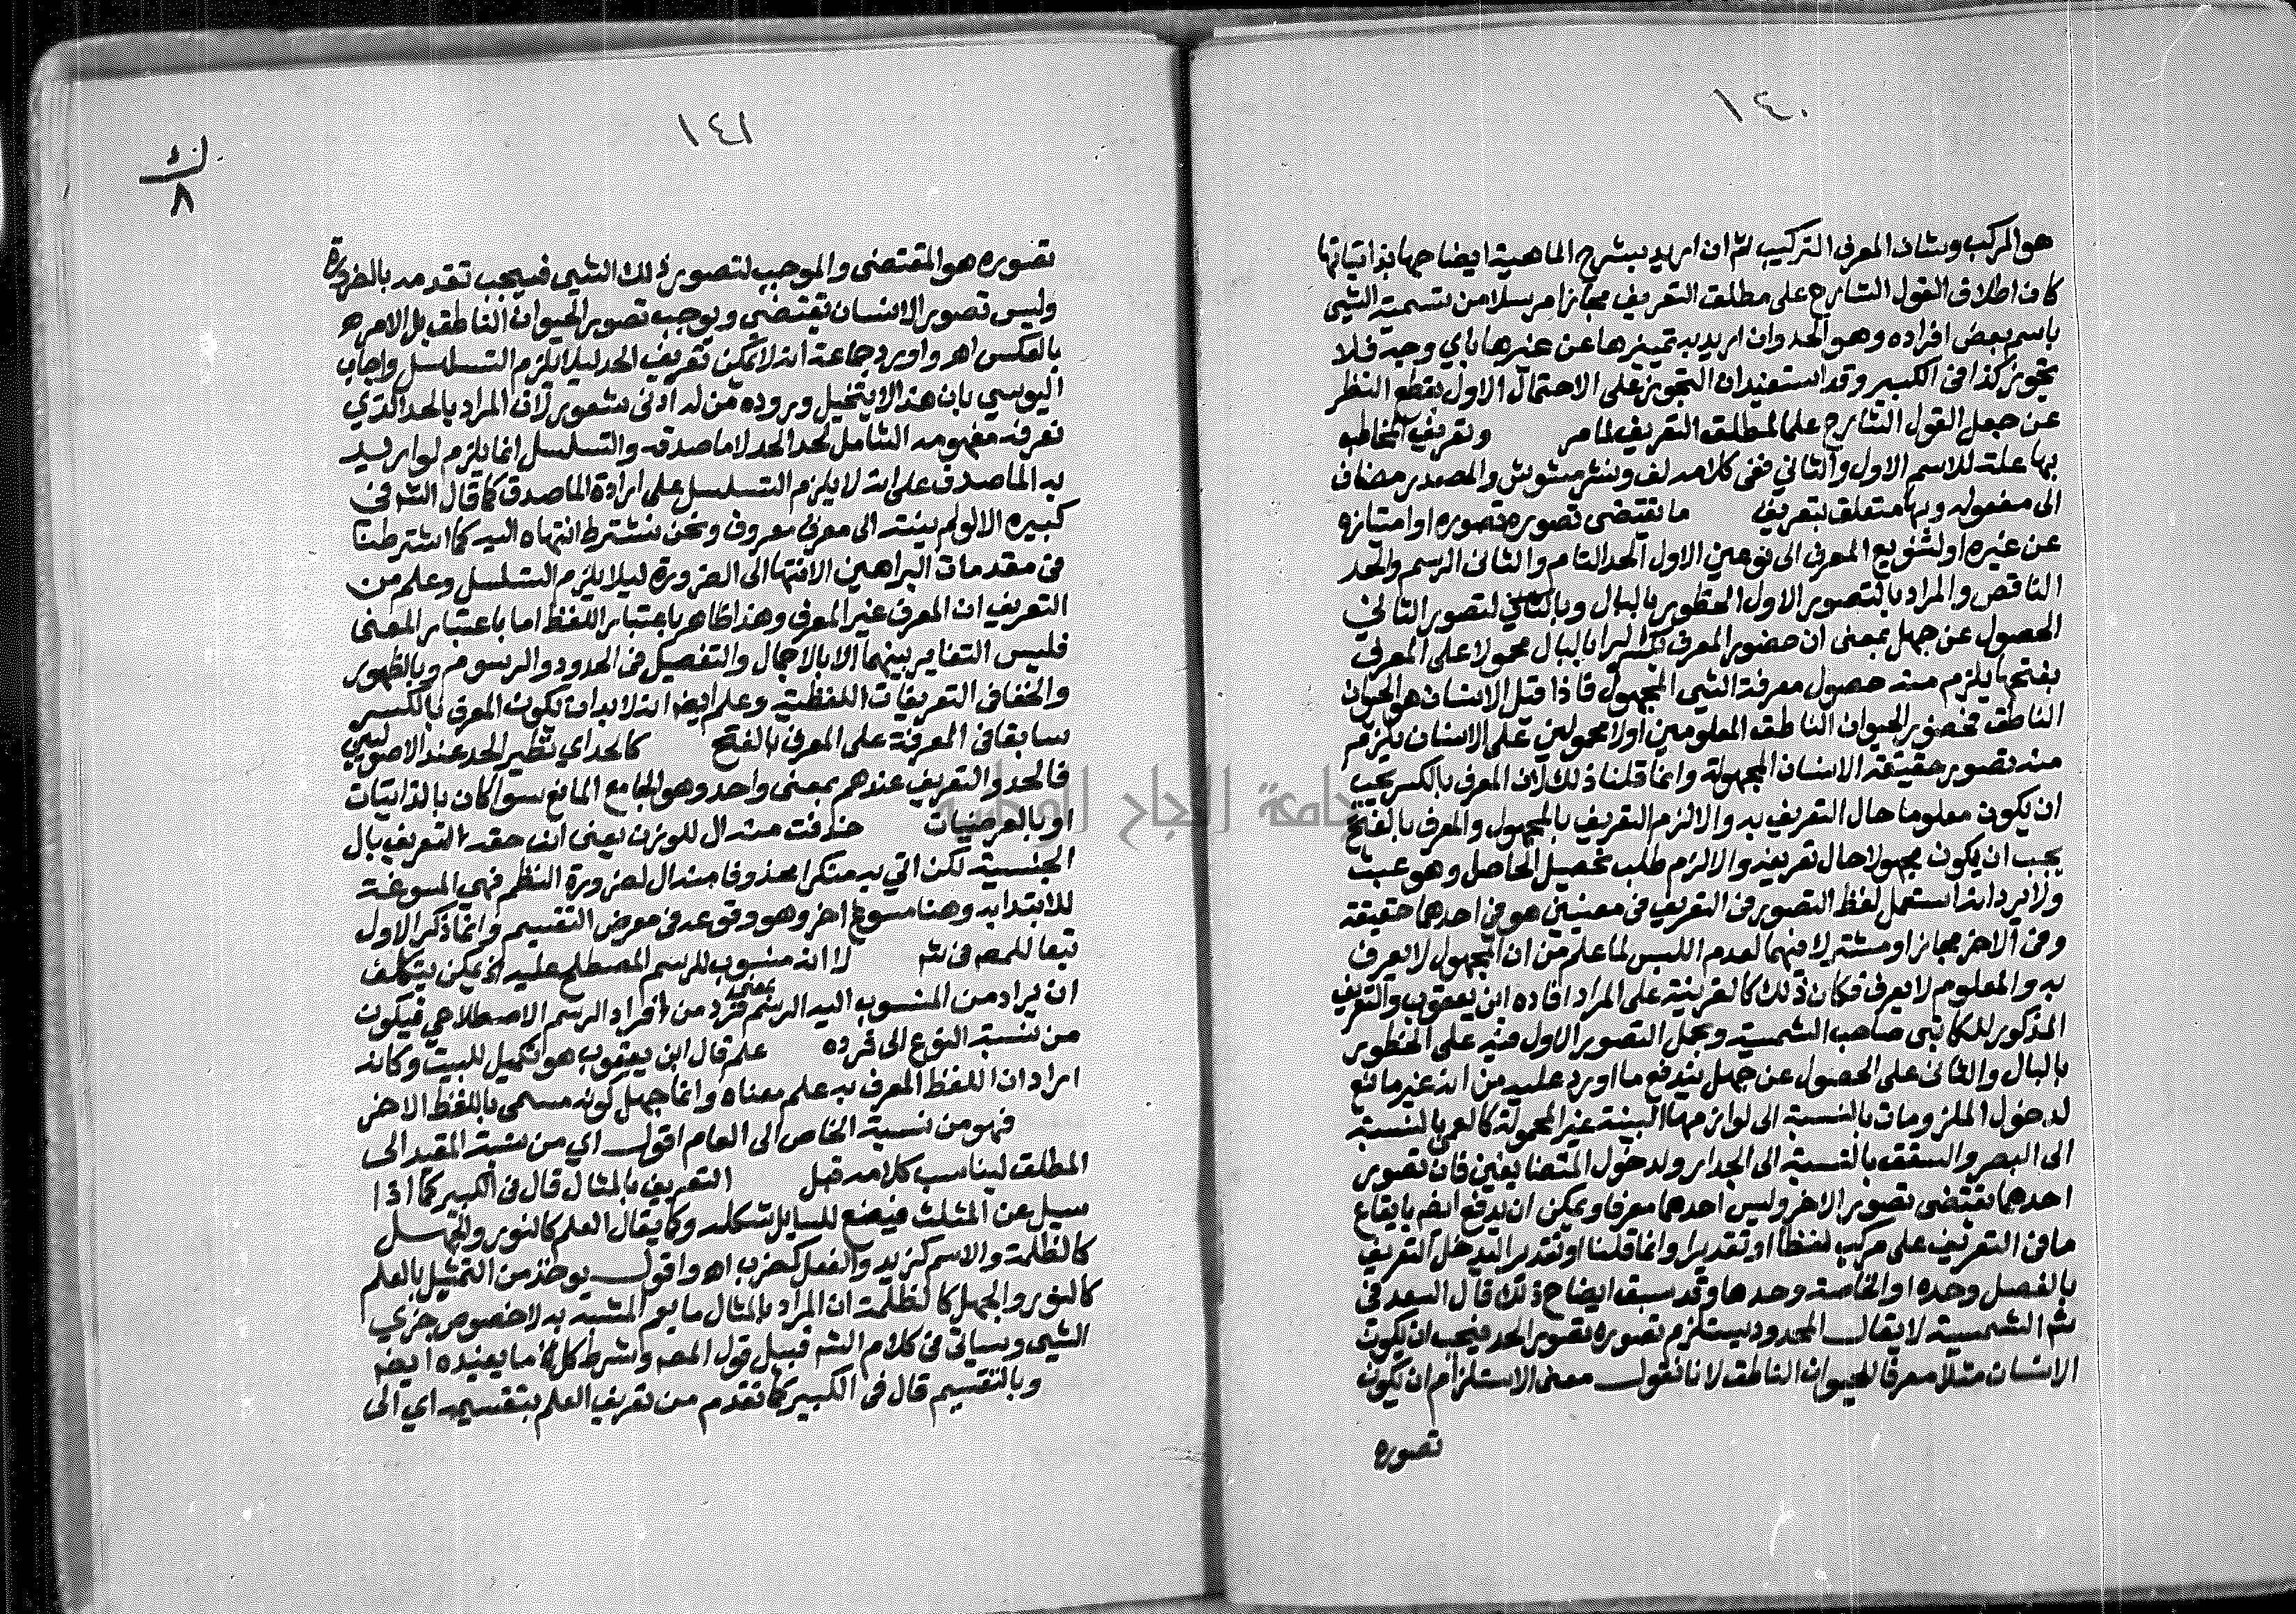 ١٤٠
هو المركب وشان المعرف التركيب ثم ان اريد بشرح الماهية ايضاحها بذاتياتها
كان اطلاق القول الشارح على مطلق التعريف مجازا مرسلا من تسمية الشي
باسم بعض افراده وهو الحد وان اريد به تميزها عن غيرها باي وجه فلا
تجوز كذا في الكبير وقد استفيد ان التجوز على الاحتمال الاول بقطع النظر
عن جعل القول الشارح علما لمطلق التعريف لما مر وتعريف المخاطب
بها علة للاسم الاول والثاني ففي كلامه لف ونشر مشوش والمصدر مضاف
الى مفعوله وبها متعلق بتعريف ما تقتضى تصوره تصوره او امتيازه
عن غيره او لتنويع المعرف الى نوعين الاول الحد التام والثاني الرسم والحد
الناقص والمراد بالتصوير الاول الخطور بالبال وبالثاني لتصور الثاني
الحصول عن جهل بمعنى ان حضور المعرف بالبال محمولا على المعرف
بفتحها يلزم منه حصول معرفة الشي المجهول فاذا قيل الانسان هو الحيوان
الناطق فحضور الحيوان الناطق المعلومين اولا محمولين على الانسان يلزم
منه تصور حقيقة الانسان المجهولة وانما قلنا ذلك لان المعرف بالكسر يجب
ان يكون معلوما حال التعريف به والا لزم التعريف بالمجهول والمعرف بالفتح
يجب ان يكون مجهولا حال تعريفه والا لزم طلب تحصيل الحاصل وهو عبث
ولا يرد انه استعمل لفظ التصور في التعريف في معنيين هو في احدهما حقيقة
وفي الاخر مجاز او مشترك فيهما لعدم اللبس لما علم من ان المجهول لا يعرف
به والمعلوم لا يعرف فكان ذلك كالقرينة على المراد افاده ابن يعقوب والتعريف
المذكور للكاتبي صاحب الشمسية وبحمل التصور الاول فيه على الخطور
بالبال والثاني على الحصول عن جهل يندفع ما اورد عليه من انه غير مانع
لدخول الملزومات بالنسبة الى لوازمها البينة غير المحمولة كالعمى بالنسبة
الى البصر والسقف بالنسبة الى الجدار ولدخول المتضايفين فان تصور
احدهما تقتضى تصور الاخر وليس احدهما معرفا ويمكن ان يدفع ايضا بايقاع
ما في التعريف على مركب لفظا او تقديرا وانما قلنا او تقديرا ليدخل التعريف
بالفصل وحده او الخاصة وحدها وقد سبق ايضاح ذلك قال السعد في
شم الشمسية لا يقال المحدود يستلزم تصوره تصور الحد فيجب ان يكون
الانسان مثلا معرفا للحيوان الناطق لانا نقول معنى الاستلزام ان يكون
تصوره
١٤١
٨
تصوره هو المقتضى والموجب لتصور ذلك الشي فيجب تقدمه بالضرورة
وليس تصور الانسان تقتضي ويوجب تصور الحيوان الناطق بل الامر هو
بالعكس اهر واورد جماعة انه لا يمكن تعريف الحد ليلا يلزم التسلسل واجاب
اليوسي بان هذا لا يتخيل وروده من له ادنى شعور لان المراد بالحد الذي
نعرفه مفهومه الشامل لحد الحد لا ماصدقه والتسلسل انما يلزم لو اريد
به الماصدق على انه لا يلزم التسلسل على ارادة الماصدق كما قال الشم في
كبيره الا لو لم ينته الى معرف معروف ونحن نشترط انتهاه اليه كما اشترطنا
في مقدمات البراهين الانتها الى الضرورة ليلا يلزم التسلسل وعلم من
التعريف ان المعرف غير المعرف وهذا ظاهر باعتبار اللفظ اما باعتبار المعنى
فليس التغاير بينهما الا بالاجمال والتفصيل في الحدود والرسوم وبالظهور
والخفا في التعريفات اللفظية وعلم ايضا انه لابد ان يكون المعرف بالكسر
سابقا في المعرفة على المعرف بالفتح كالحد اي نظير الحد عند الاصوليين
فالحد والتعريف عندهم بمعنى واحد وهو الجامع المانع سوا كان بالذاتيات
او بالعرضيات حذفت منه ال للوزن يعنى ان حقه التعريف بال
الجنسية لكن اتي به منكرا محذوفا منه ال لضرورة النظم فهي المسوغة
للابتدا به وهنا مسوغ اخر وهو وقوعه في معرض التقسيم وانما ذكر الاول
تبعا للمصم في شم لا انه منسوب للرسم المصطلح عليه الخ يمكن بتكلف
ان يراد من المنسوب اليه الرسم بمعنى فرد من افراد الرسم الاصطلاحي فيكون
من نسبة النوع الى فرده علم قال ابن يعقوب هو تكميل للبيت وكانه
اراد ان اللفظ المعرف به علم معناه وانما جهل كونه مسمى باللفظ الاخر
فهو من نسبة الخاص الى العام اقول اي من نسبة المقيد الى
المطلق ليناسب كلامه قبل التعريف بالمثال قال في الكبير كما اذا
سيل عن المثلث فيضع للسايل شكله وكما يقال العلم كالنور والجهل
كالظلمة والاسم كزيد والفعل كضرب اهر واقول يوخذ من التمثيل بالعلم
كالنور والجهل كالظلمة ان المراد بالمثال ما يعم المشبه به لا خصوص جزي
الشي وسياتي في كلام الشم قبيل قول المصم وشرط كل الخ ما يفيده ايضم
وبالتقسيم قال في الكبير كما تقدم من تعريف العلم بتقسيمه اي الى
جامعة النجاح الوطنية